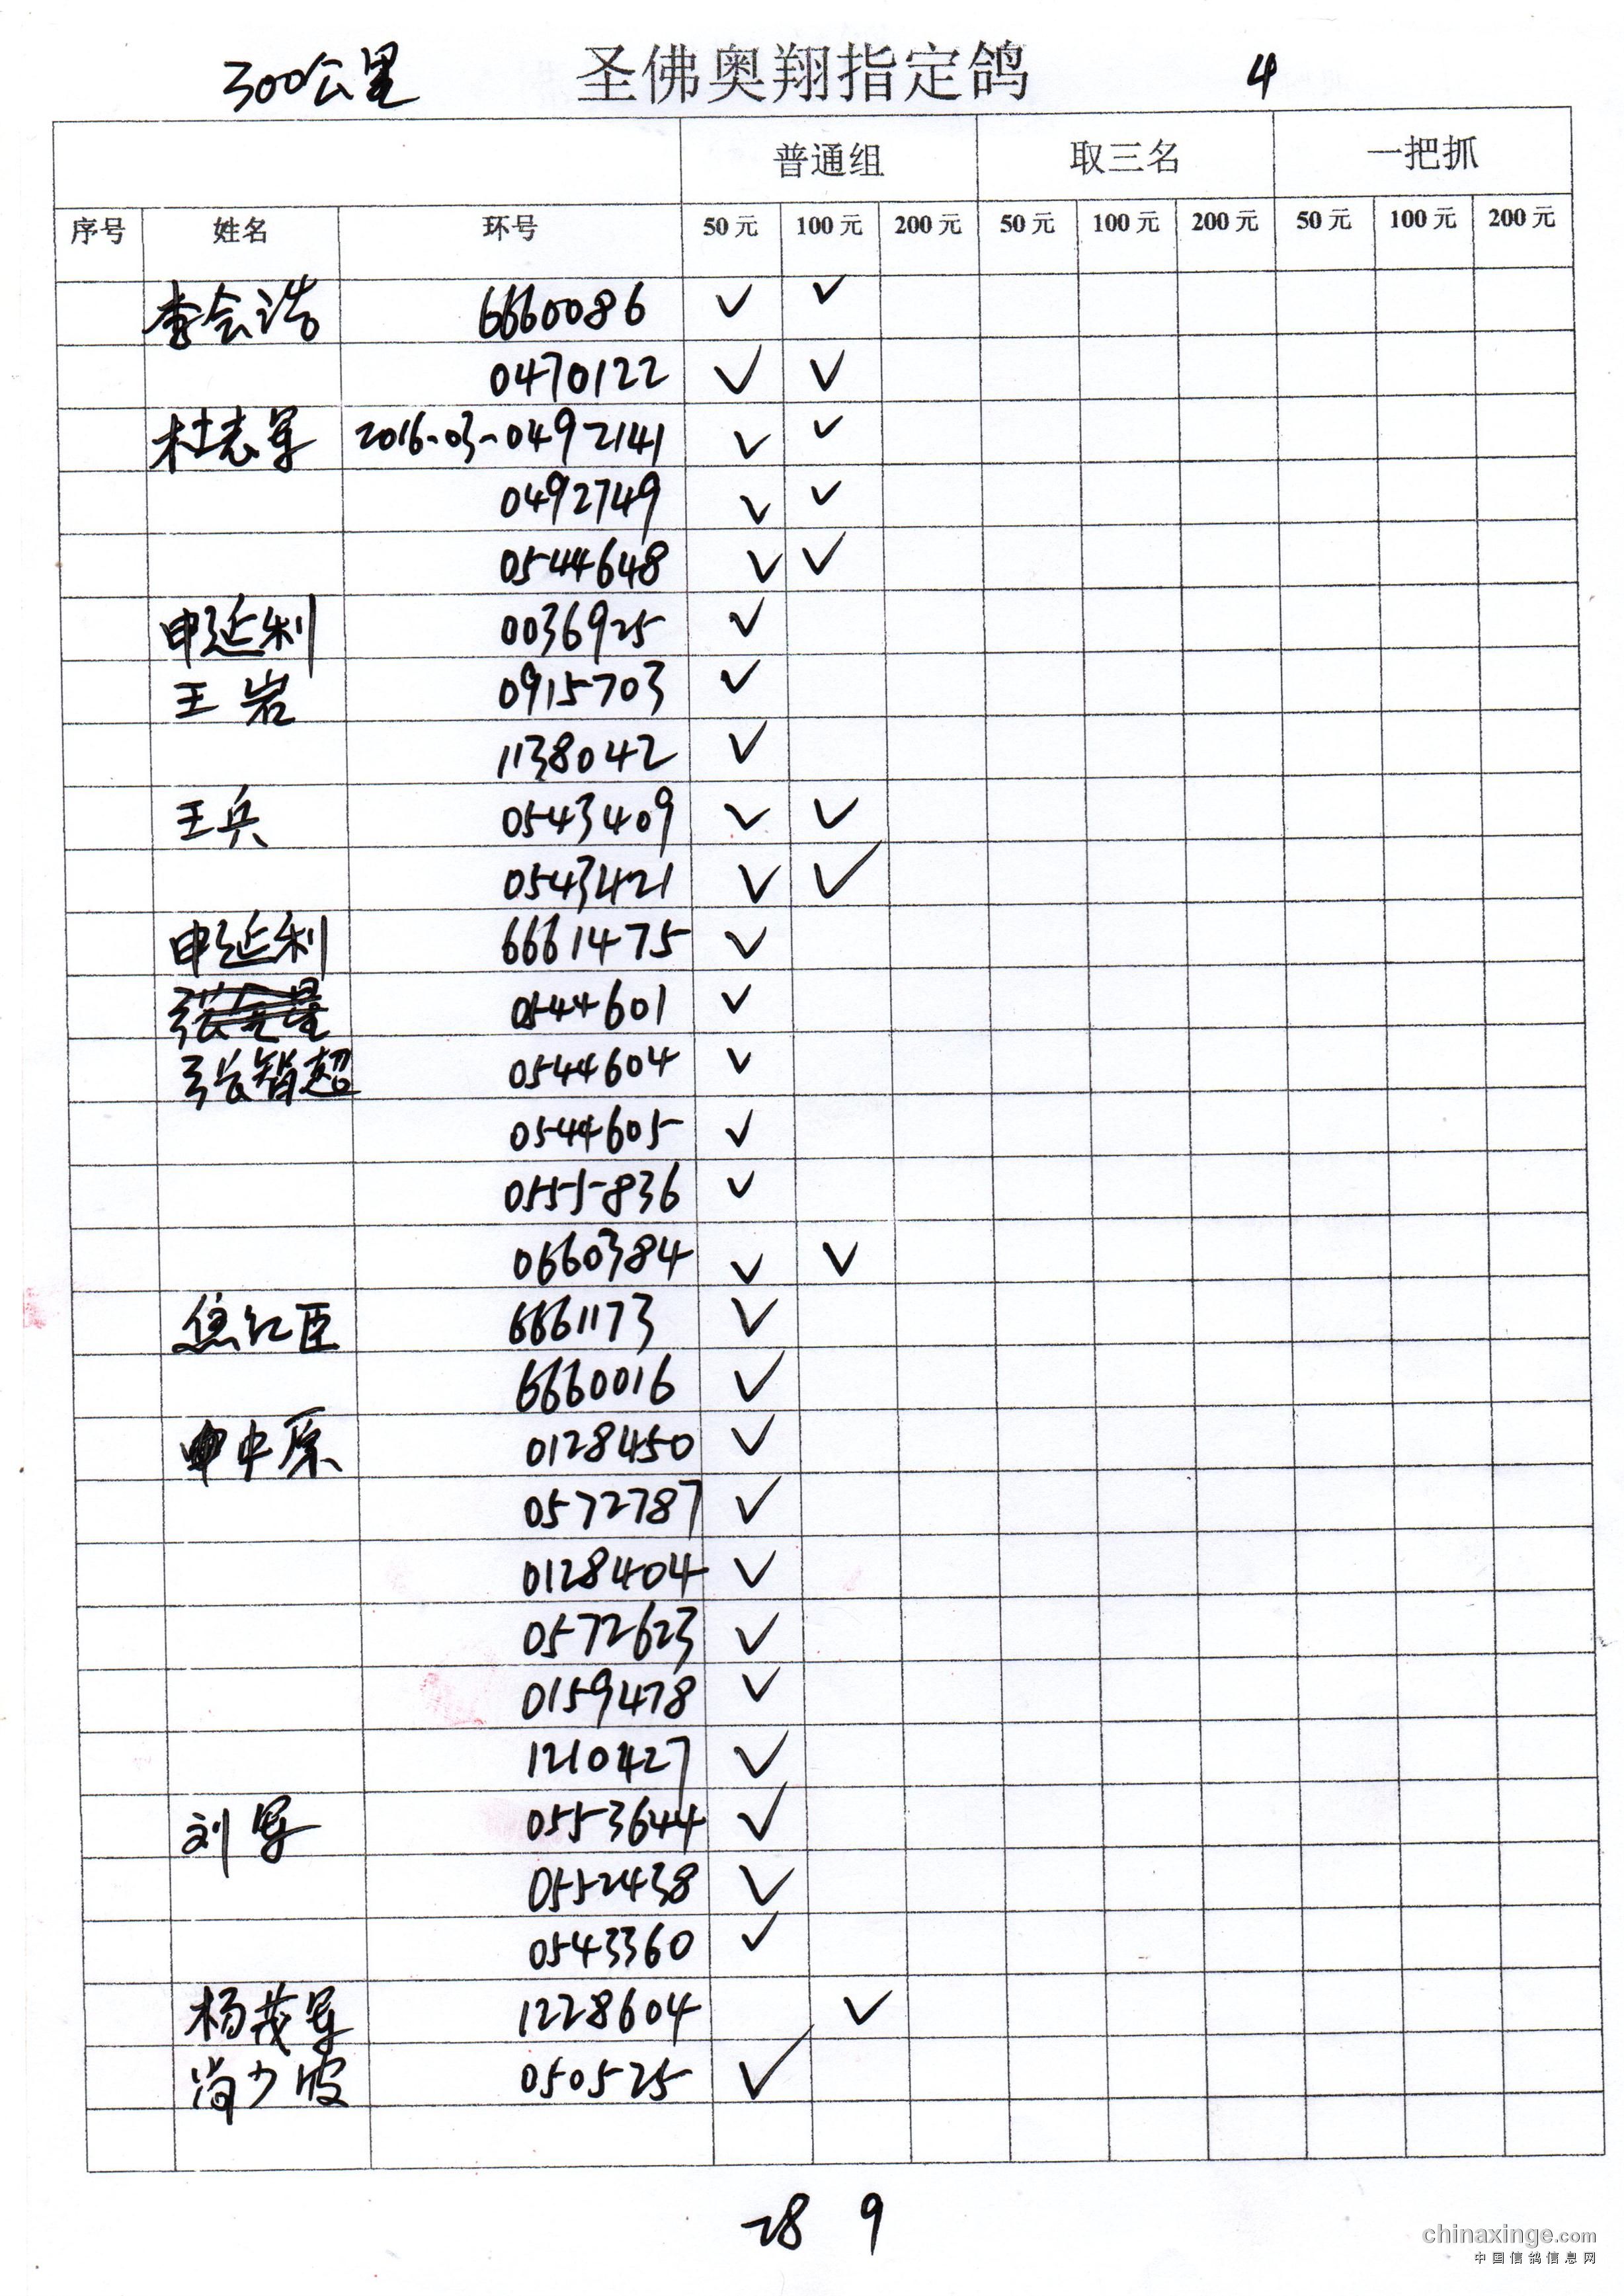 300公里 圣佛奥翔指定鸽 4
普通组 取三名 一把抓
序号 姓名 环号 50元 100元 200元 50元 100元 200元 50元 100元 200元
李会浩 6660086 ✓ ✓
0470122 ✓ ✓
杜志军 2016-03-0492141 ✓ ✓
0492749 ✓ ✓
0544648 ✓ ✓
申延利 0036925 ✓
王岩 0915703 ✓
1138042 ✓
王兵 0543409 ✓ ✓
0543421 ✓ ✓
申延利 6661475 ✓
0544601 ✓
张智超 0544604 ✓
0544605 ✓
0555836 ✓
0660384 ✓ ✓
焦红臣 6661173 ✓
6660016 ✓
申中原 0128450 ✓
0572787 ✓
0128404 ✓
0572623 ✓
0159478 ✓
1210427 ✓
刘军 0553644 ✓
0552438 ✓
0543360 ✓
杨茂军 1228604 ✓
尚少波 050525 ✓
28 9
chinaxinge.com
中国信鸽信息网